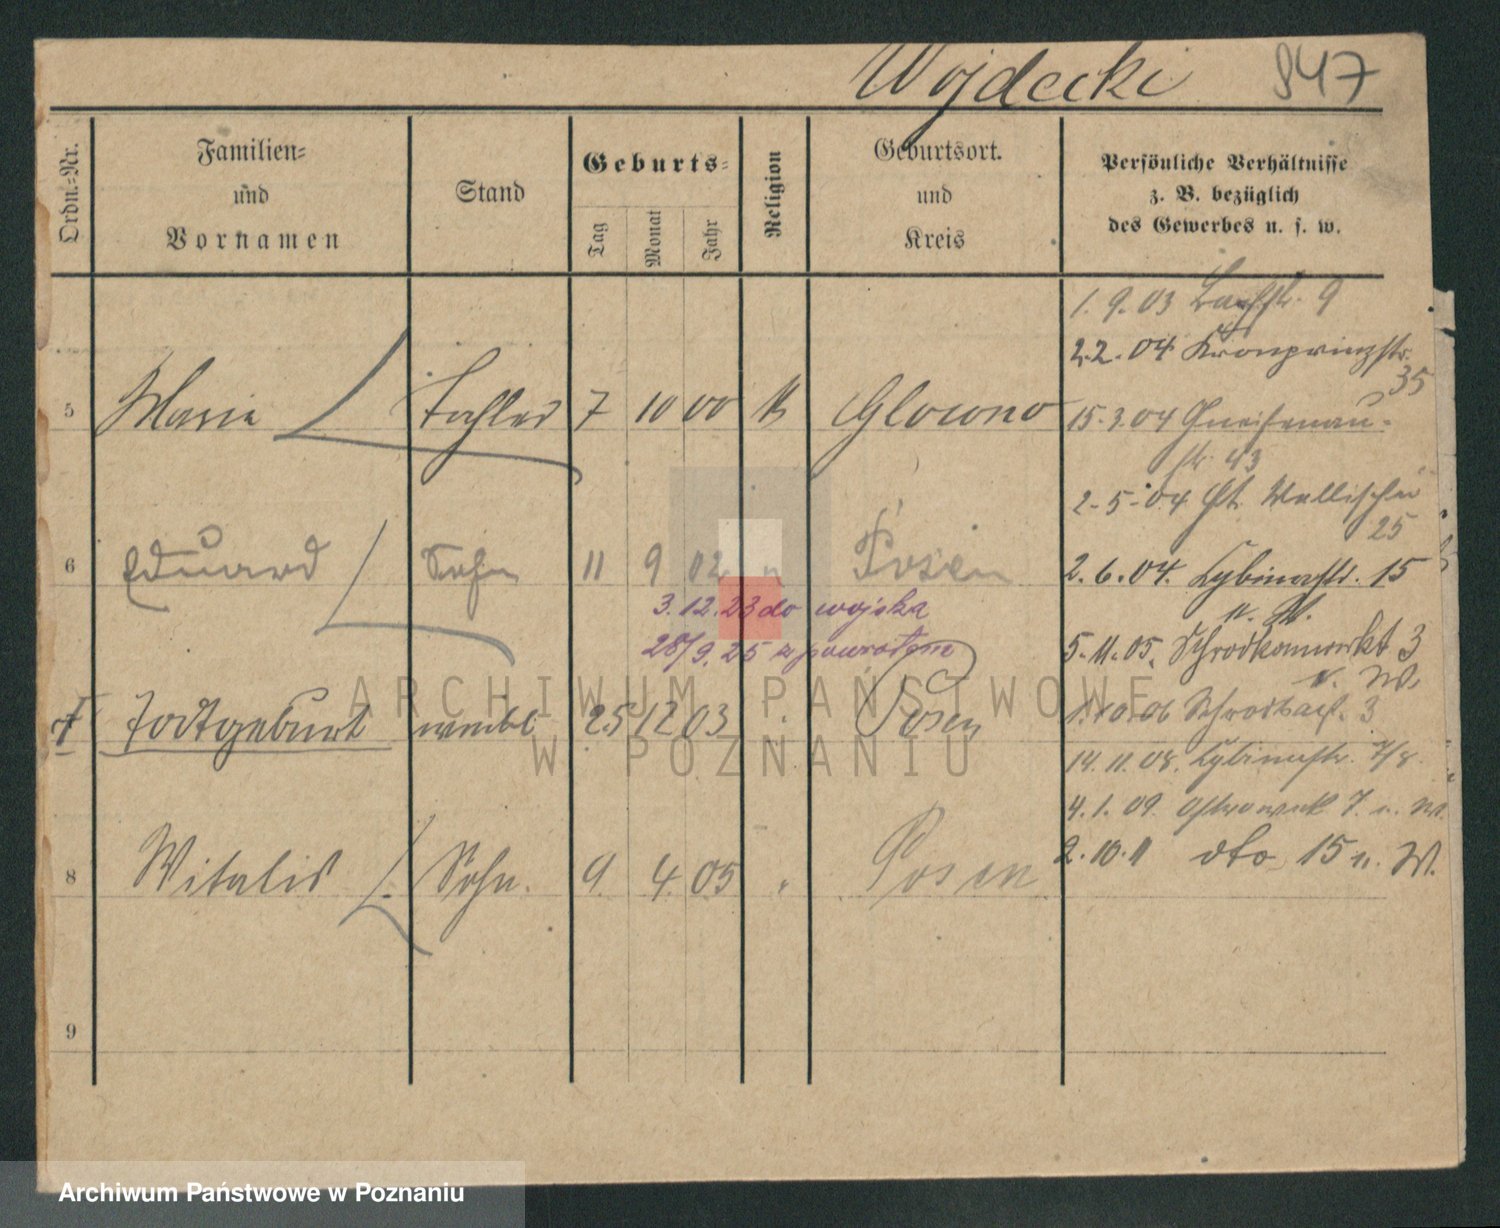 Wojdecki 947
Ordn.-Nr.
Familien-
und
Vornamen
Stand
Geburts-
Tag
Monat
Jahr
Religion
Geburtsort.
und
Kreis
Persönliche Verhältnisse
z. B. bezüglich
des Gewerbes u. s. w.
1. 9. 03 9
2.2. 04 Kronprinzstr.
35
5 Marie Tochter 7 10 00 k Glowno
15.3.04 Gneisenau-
str. 43
2.5.04 Wallischei
25
6 Eduard Sohn 11 9 02 " Posen
2.6.04. Cybinastr. 15
u. W.
3.12.23 do wojska
28/9.25 z powrotem
5.11.05. Schrodkamarkt 3
u. W.
7 Todtgeburt weibl 25 12 03 " Posen
1.10.06 3
14.11.08. Cybinastr. 7/8
4.1.09. Ostrowek 7. u. W.
8 Vitalis Sohn. 9 4 05 " Posen
2.10.11 dto 15 u. W.
9
ARCHIWUM PAŃSTWOWE
W POZNANIU
Archiwum Państwowe w Poznaniu